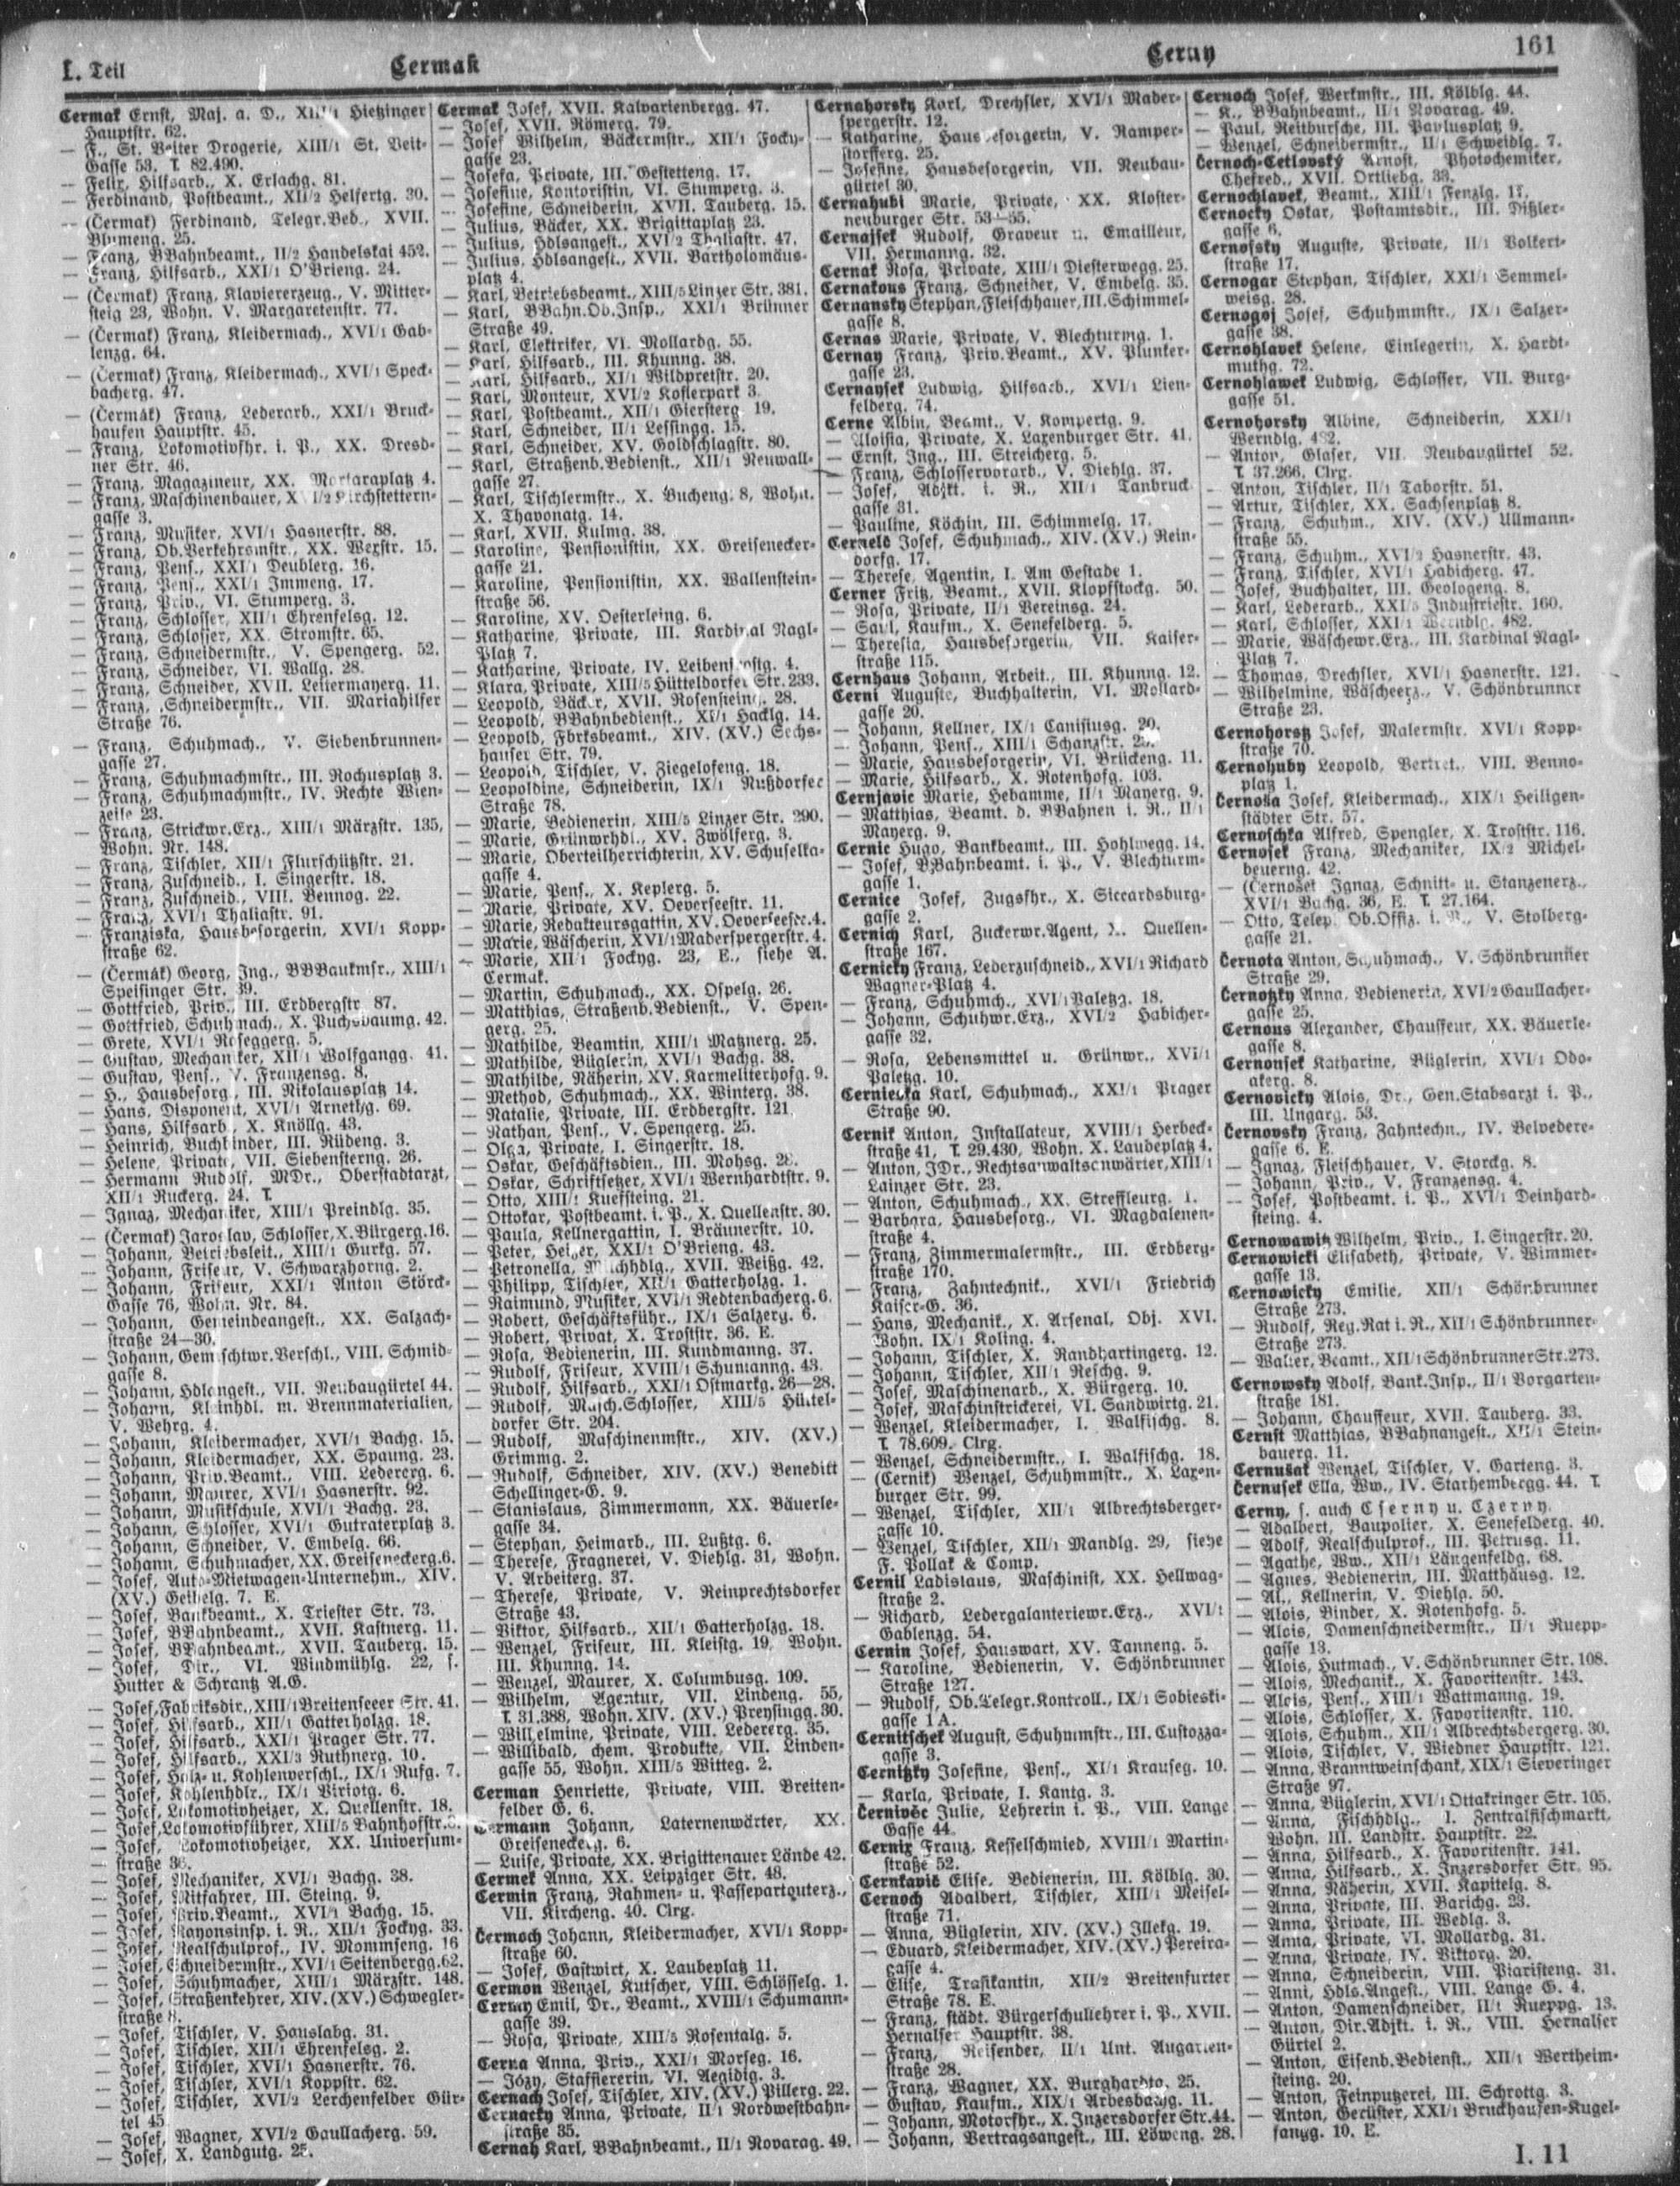 I. Teil
Cermak
Cerny
161
Cermak Ernst, Maj. a. D., XIII/1 Hietzinger
Hauptstr. 62.
— F., St. Veiter Drogerie, XIII/1 St. Veit-
Gasse 53. T. 82.490.
— Felix, Hilfsarb., X. Erlachg. 81.
— Ferdinand, Postbeamt., XII/2 Helfertg. 30.
— (Čermak) Ferdinand, Telegr.Bed., XVII.
Blumeng. 25.
— Franz, BBahnbeamt., II/2 Handelskai 452.
— Franz, Hilfsarb., XXI/1 O'Brieng. 24.
— (Čermak) Franz, Klaviererzeug., V. Mitter-
steig 23, Wohn. V. Margaretenstr. 77.
— (Čermak) Franz, Kleidermach., XVI/1 Gab-
lenzg. 64.
— (Čermak) Franz, Kleidermach., XVI/1 Speck-
bacherg. 47.
— (Čermák) Franz, Lederarb., XXI/1 Bruck-
haufen Hauptstr. 45.
— Franz, Lokomotivfhr. i. P., XX. Dresd-
ner Str. 46.
— Franz, Magazineur, XX. Mortaraplatz 4.
— Franz, Maschinenbauer, XVI/2 Kirchstettern-
gasse 3.
— Franz, Musiker, XVI/1 Hasnerstr. 88.
— Franz, Ob.Verkehrsmstr., XX. Wexstr. 15.
— Franz, Pens., XXI/1 Deublerg. 16.
— Franz, Pens., XXI/1 Immeng. 17.
— Franz, Priv., VI. Stumperg. 3.
— Franz, Schlosser, XII/1 Ehrenfelsg. 12.
— Franz, Schlosser, XX. Stromstr. 65.
— Franz, Schneidermstr., V. Spengerg. 52.
— Franz, Schneider, VI. Wallg. 28.
— Franz, Schneider, XVII. Leitermayerg. 11.
— Franz, Schneidermstr., VII. Mariahilfer
Straße 76.
— Franz, Schuhmach., V. Siebenbrunnen-
gasse 27.
— Franz, Schuhmachmstr., III. Rochusplatz 3.
— Franz, Schuhmachmstr., IV. Rechte Wien-
zeile 23.
— Franz, Strickwr.Erz., XIII/1 Märzstr. 135,
Wohn. Nr. 148.
— Franz, Tischler, XII/1 Flurschützstr. 21.
— Franz, Zuschneid., I. Singerstr. 18.
— Franz, Zuschneid., VIII. Bennog. 22.
— Franz, XVI/1 Thaliastr. 91.
— Franziska, Hausbesorgerin, XVI/1 Kopp-
straße 62.
— (Čermák) Georg, Ing., BBBaukmsr., XIII/1
Speisinger Str. 39.
— Gottfried, Priv., III. Erdbergstr. 87.
— Gottfried, Schuhmach., X. Puchsbaumg. 42.
— Grete, XVI/1 Roseggerg. 5.
— Gustav, Mechaniker, XII/1 Wolfgangg. 41.
— Gustav, Pens., V. Franzensg. 8.
— H., Hausbesorg., III. Nikolausplatz 14.
— Hans, Disponent, XVI/1 Arnethg. 69.
— Hans, Hilfsarb., X. Knöllg. 43.
— Heinrich, Buchbinder, III. Rüdeng. 3.
— Helene, Private, VII. Siebensterng. 26.
— Hermann Rudolf, MDr., Oberstadtarzt,
XII/1 Ruckerg. 24. T.
— Ignaz, Mechaniker, XIII/1 Preindlg. 35.
— (Čermak) Jaroslav, Schlosser, X. Bürgerg. 16.
— Johann, Betriebsleit., XIII/1 Gurkg. 57.
— Johann, Friseur, V. Schwarzhorng. 2.
— Johann, Friseur, XXI/1 Anton Störck-
Gasse 76, Wohn. Nr. 84.
— Johann, Gemeindeangest., XX. Salzach-
straße 24—30.
— Johann, Gemischtwr.Verschl., VIII. Schmid-
gasse 8.
— Johann, Hdlangest., VII. Neubaugürtel 44.
— Johann, Kleinhdl. m. Brennmaterialien,
V. Wehrg. 4.
— Johann, Kleidermacher, XVI/1 Bachg. 15.
— Johann, Kleidermacher, XX. Spaung. 23.
— Johann, Priv.Beamt., VIII. Ledererg. 6.
— Johann, Maurer, XVI/1 Hasnerstr. 92.
— Johann, Musikschule, XVI/1 Bachg. 23.
— Johann, Schlosser, XVI/1 Gutraterplatz 3.
— Johann, Schneider, V. Embelg. 66.
— Johann, Schuhmacher, XX. Greiseneckerg. 6.
— Josef, Auto-Mietwagen-Unternehm., XIV.
(XV.) Geibelg. 7. E.
— Josef, Bankbeamt., X. Triester Str. 73.
— Josef, BBahnbeamt., XVII. Kastnerg. 11.
— Josef, BBahnbeamt., XVII. Tauberg. 15.
— Josef, Dir., VI. Windmühlg. 22, s.
Hutter & Schrantz A.G.
— Josef, Fabriksdir., XIII/1 Breitenseeer Str. 41.
— Josef, Hilfsarb., XII/1 Gatterholzg. 18.
— Josef, Hilfsarb., XXI/1 Prager Str. 77.
— Josef, Hilfsarb., XXI/3 Ruthnerg. 10.
— Josef, Holz- u. Kohlenverschl., IX/1 Rufg. 7.
— Josef, Kohlenhdlr., IX/1 Viriotg. 6.
— Josef, Lokomotivheizer, X. Quellenstr. 18.
— Josef, Lokomotivführer, XIII/5 Bahnhofstr. 8.
— Josef, Lokomotivheizer, XX. Universum-
straße 36.
— Josef, Mechaniker, XVI/1 Bachg. 38.
— Josef, Mitfahrer, III. Steing. 9.
— Josef, Priv.Beamt., XVI/1 Bachg. 15.
— Josef, Rayonsinsp. i. R., XII/1 Fockyg. 33.
— Josef, Realschulprof., IV. Mommseng. 16
— Josef, Schneidermstr., XVI/1 Seitenbergg. 62.
— Josef, Schuhmacher, XIII/1 Märzstr. 148.
— Josef, Straßenkehrer, XIV. (XV.) Schwegler-
straße 8.
— Josef, Tischler, V. Hauslabg. 31.
— Josef, Tischler, XII/1 Ehrenfelsg. 2.
— Josef, Tischler, XVI/1 Hasnerstr. 76.
— Josef, Tischler, XVI/1 Koppstr. 62.
— Josef, Tischler, XVI/2 Lerchenfelder Gür-
tel 45
— Josef, Wagner, XVI/2 Gaullacherg. 59.
— Josef, X. Landgutg. 25.
Cermak Josef, XVII. Kalvarienbergg. 47.
— Josef, XVII. Römerg. 79.
— Josef Wilhelm, Bäckermstr., XII/1 Focky-
gasse 23.
— Josefa, Private, III. Gestetteng. 17.
— Josefine, Kontoristin, VI. Stumperg. 3.
— Josefine, Schneiderin, XVII. Tauberg. 15.
— Julius, Bäcker, XX. Brigittaplatz 23.
— Julius, Hdlsangest., XVI/2 Thaliastr. 47.
— Julius, Hdlsangest., XVII. Bartholomäus-
platz 4.
— Karl, Betriebsbeamt., XIII/5 Linzer Str. 381.
— Karl, BBahn.Ob.Insp., XXI/1 Brünner
Straße 49.
— Karl, Elektriker, VI. Mollardg. 55.
— Karl, Hilfsarb., III. Khunng. 38.
— Karl, Hilfsarb., XI/1 Wildpretstr. 20.
— Karl, Monteur, XVI/2 Koflerpark 3.
— Karl, Postbeamt., XII/1 Giersterg. 19.
— Karl, Schneider, II/1 Lessingg. 15.
— Karl, Schneider, XV. Goldschlagstr. 80.
— Karl, Straßenb.Bedienst., XII/1 Neuwall-
gasse 27.
— Karl, Tischlermstr., X. Bucheng. 8, Wohn.
X. Thavonatg. 14.
— Karl, XVII. Kulmg. 38.
— Karoline, Pensionistin, XX. Greisenecker-
gasse 21.
— Karoline, Pensionistin, XX. Wallenstein-
straße 56.
— Karoline, XV. Oesterleing. 6.
— Katharine, Private, III. Kardinal Nagl-
Platz 7.
— Katharine, Private, IV. Leibenfrostg. 4.
— Klara, Private, XIII/5 Hütteldorfer Str. 233.
— Leopold, Bäcker, XVII. Rosensteing. 28.
— Leopold, BBahnbedienst., XI/1 Hacklg. 14.
— Leopold, Fbrksbeamt., XIV. (XV.) Sechs-
hauser Str. 79.
— Leopold, Tischler, V. Ziegelofeng. 18.
— Leopoldine, Schneiderin, IX/1 Nußdorfer
Straße 78.
— Marie, Bedienerin, XIII/5 Linzer Str. 290.
— Marie, Grünwrhdl., XV. Zwölferg. 3.
— Marie, Oberteilherrichterin, XV. Schuselka-
gasse 4.
— Marie, Pens., X. Keplerg. 5.
— Marie, Private, XV. Oeverseestr. 11.
— Marie, Redakteursgattin, XV. Oeverseestr. 4.
— Marie, Wäscherin, XVI/1 Maderspergerstr. 4.
— Marie, XII/1 Fockyg. 23, E., siehe A.
Cermak.
— Martin, Schuhmach., XX. Ospelg. 26.
— Matthias, Straßenb.Bedienst., V. Spen-
gerg. 25.
— Mathilde, Beamtin, XIII/1 Matznerg. 25.
— Mathilde, Büglerin, XVI/1 Bachg. 38.
— Mathilde, Näherin, XV. Karmeliterhofg. 9.
— Method, Schuhmach., XX. Winterg. 38.
— Natalie, Private, III. Erdbergstr. 121.
— Nathan, Pens., V. Spengerg. 25.
— Olga, Private, I. Singerstr. 18.
— Oskar, Geschäftsdien., III. Mohsg. 28.
— Oskar, Schriftsetzer, XVI/1 Wernhardtstr. 9.
— Otto, XIII/1 Kuefsteing. 21.
— Ottokar, Postbeamt. i. P., X. Quellenstr. 30.
— Paula, Kellnergattin, I. Bräunerstr. 10.
— Peter, Heizer, XXI/1 O'Brieng. 43.
— Petronella, Milchhdlg., XVII. Weißg. 42.
— Philipp, Tischler, XII/1 Gatterholzg. 1.
— Raimund, Musiker, XVI/1 Redtenbacherg. 6.
— Robert, Geschäftsführ., IX/1 Salzerg. 6.
— Robert, Privat, X. Troststr. 36. E.
— Rosa, Bedienerin, III. Kundmanng. 37.
— Rudolf, Friseur, XVIII/1 Schumanng. 43.
— Rudolf, Hilfsarb., XXI/1 Ostmarkg. 26—28.
— Rudolf, Masch.Schlosser, XIII/5 Hüttel-
dorfer Str. 204.
— Rudolf, Maschinenmstr., XIV. (XV.)
Grimmg. 2.
— Rudolf, Schneider, XIV. (XV.) Benedikt
Schellinger-G. 9.
— Stanislaus, Zimmermann, XX. Bäuerle-
gasse 34.
— Stephan, Heimarb., III. Lußtg. 6.
— Therese, Fragnerei, V. Diehlg. 31, Wohn.
V. Arbeiterg. 37.
— Therese, Private, V. Reinprechtsdorfer
Straße 43.
— Viktor, Hilfsarb., XII/1 Gatterholzg. 18.
— Wenzel, Friseur, III. Kleistg. 19, Wohn.
III. Khunng. 14.
— Wenzel, Maurer, X. Columbusg. 109.
— Wilhelm, Agentur, VII. Lindeng. 55,
T. 31.388, Wohn. XIV. (XV.) Preysingg. 30.
— Wilhelmine, Private, VIII. Ledererg. 35.
— Willibald, chem. Produkte, VII. Linden-
gasse 55, Wohn. XIII/5 Witteg. 2.
Cerman Henriette, Private, VIII. Breiten-
felder G. 6.
Cermann Johann, Laternenwärter, XX.
Greiseneckerg. 6.
— Luise, Private, XX. Brigittenauer Lände 42.
Cermek Anna, XX. Leipziger Str. 48.
Cermin Franz, Rahmen- u. Passepartouterz.,
VII. Kircheng. 40. Clrg.
Čermoch Johann, Kleidermacher, XVI/1 Kopp-
straße 60.
— Josef, Gastwirt, X. Laubeplatz 11.
Cermon Wenzel, Kutscher, VIII. Schlösselg. 1.
Cermy Emil, Dr., Beamt., XVIII/1 Schumann-
gasse 39.
— Rosa, Private, XIII/5 Rosentalg. 5.
Cerna Anna, Priv., XXI/1 Morseg. 16.
— Józy, Staffiererin, VI. Aegidig. 3.
Cernach Josef, Tischler, XIV. (XV.) Pillerg. 22.
Cernacky Anna, Private, II/1 Nordwestbahn-
straße 35.
Cernah Karl, BBahnbeamt., II/1 Novarag. 49.
Cernahorsky Karl, Drechsler, XVI/1 Mader-
spergerstr. 12.
— Katharine, Hausbesorgerin, V. Ramper-
storfferg. 25.
— Josefine, Hausbesorgerin, VII. Neubau-
gürtel 30.
Cernahubi Marie, Private, XX. Kloster-
neuburger Str. 53—55.
Cernajsek Rudolf, Graveur u. Emailleur,
VII. Hermanng. 32.
Cernak Rosa, Private, XIII/1 Diesterwegg. 25.
Cernakous Franz, Schneider, V. Embelg. 35.
Cernansky Stephan, Fleischhauer, III. Schimmel-
gasse 8.
Cernas Marie, Private, V. Blechturmg. 1.
Cernay Franz, Priv.Beamt., XV. Plunker-
gasse 23.
Cernaysek Ludwig, Hilfsarb., XVI/1 Lien-
felderg. 74.
Cerne Albin, Beamt., V. Kompertg. 9.
— Aloisia, Private, X. Laxenburger Str. 41.
— Ernst, Ing., III. Streicherg. 5.
— Franz, Schlosservorarb., V. Diehlg. 37.
— Josef, Adjkt. i. R., XII/1 Tanbruck-
gasse 31.
— Pauline, Köchin, III. Schimmelg. 17.
Cerneld Josef, Schuhmach., XIV. (XV.) Rein-
dorfg. 17.
— Therese, Agentin, I. Am Gestade 1.
Cerner Fritz, Beamt., XVII. Klopfstockg. 50.
— Rosa, Private, II/1 Vereinsg. 24.
— Saul, Kaufm., X. Senefelderg. 5.
— Theresia, Hausbesorgerin, VII. Kaiser-
straße 115.
Cernhaus Johann, Arbeit., III. Khunng. 12.
Cerni Auguste, Buchhalterin, VI. Mollard-
gasse 20.
— Johann, Kellner, IX/1 Canisiusg. 20.
— Johann, Pens., XIII/1 Schanzstr.
— Marie, Hausbesorgerin, VI. Brückeng. 11.
— Marie, Hilfsarb., X. Rotenhofg. 103.
Cernjavic Marie, Hebamme, II/1 Mayerg. 9.
— Matthias, Beamt. d. BBahnen i. R., II/1
Mayerg. 9.
Cernic Hugo, Bankbeamt., III. Hohlwegg. 14.
— Josef, BBahnbeamt. i. P., V. Blechturm-
gasse 1.
Cernice Josef, Zugsfhr., X. Siccardsburg-
gasse 2.
Cernich Karl, Zuckerwr.Agent, X. Quellen-
straße 167.
Cernicky Franz, Lederzuschneid., XVI/1 Richard
Wagner-Platz 4.
— Franz, Schuhmch., XVI/1 Paletzg. 18.
— Johann, Schuhwr.Erz., XVI/2 Habicher-
gasse 32.
— Rosa, Lebensmittel u. Grünwr., XVI/1
Paletzg. 10.
Cerniecka Karl, Schuhmach., XXI/1 Prager
Straße 90.
Cernik Anton, Installateur, XVIII/1 Herbeck-
straße 41, T. 29.430, Wohn. X. Laubeplatz 4.
— Anton, JDr., Rechtsanwaltsanwärter, XIII/1
Lainzer Str. 23.
— Anton, Schuhmach., XX. Streffleurg. 1.
— Barbara, Hausbesorg., VI. Magdalenen-
straße 4.
— Franz, Zimmermalermstr., III. Erdberg-
straße 170.
— Franz, Zahntechnik., XVI/1 Friedrich
Kaiser-G. 36.
— Hans, Mechanik., X. Arsenal, Obj. XVI.
Wohn. IX/1 Koling. 4.
— Johann, Tischler, X. Randhartingerg. 12.
— Johann, Tischler, XII/1 Reschg. 9.
— Josef, Maschinenarb., X. Bürgerg. 10.
— Josef, Maschinstrickerei, VI. Sandwirtg. 21.
— Wenzel, Kleidermacher, I. Walfischg. 8.
T. 78.609. Clrg.
— Wenzel, Schneidermstr., I. Walfischg. 18.
— (Cernik) Wenzel, Schuhmmstr., X. Laxen-
burger Str. 99.
— Wenzel, Tischler, XII/1 Albrechtsberger-
gasse 10.
— Wenzel, Tischler, XII/1 Mandlg. 29, siehe
F. Pollak & Comp.
Cernil Ladislaus, Maschinist, XX. Hellwag-
straße 2.
— Richard, Ledergalanteriewr.Erz., XVI/1
Gablenzg. 54.
Cernin Josef, Hauswart, XV. Tanneng. 5.
— Karoline, Bedienerin, V. Schönbrunner
Straße 127.
— Rudolf, Ob.Telegr.Kontroll., IX/1 Sobieski-
gasse 1 A.
Cernitschek August, Schuhmmstr., III. Custozza-
gasse 3.
Cernitzky Josefine, Pens., XI/1 Krauseg. 10.
— Karla, Private, I. Kantg. 3.
Černivěc Julie, Lehrerin i. P., VIII. Lange
Gasse 44.
Cernix Franz, Kesselschmied, XVIII/1 Martin-
straße 52.
Cernkavić Elise, Bedienerin, III. Kölblg. 30.
Cernoch Adalbert, Tischler, XIII/1 Meisel-
straße 71.
— Anna, Büglerin, XIV. (XV.) Illekg. 19.
— Eduard, Kleidermacher, XIV. (XV.) Pereira-
gasse 4.
— Elise, Trafikantin, XII/2 Breitenfurter
Straße 78. E.
— Franz, städt. Bürgerschullehrer i. P., XVII.
Hernalser Hauptstr. 38.
— Franz, Reisender, II/1 Unt. Augarten-
straße 28.
— Franz, Wagner, XX. Burghardtg. 25.
— Gustav, Kaufm., XIX/1 Arbesbachg. 11.
— Johann, Motorfhr., X. Inzersdorfer Str. 44.
— Johann, Vertragsangest., III. Löweng. 28.
Cernoch Josef, Werkmstr., III. Kölblg. 44.
— K., BBahnbeamt., II/1 Novarag. 49.
— Paul, Reitbursche, III. Paulusplatz 9.
— Wenzel, Schneidermstr., II/1 Schweidlg. 7.
Černoch-Cetlovský Arnost, Photochemiker,
Chefred., XVII. Ortliebg. 33.
Cernochlavek, Beamt., XIII/1 Fenzlg. 17.
Cernocky Oskar, Postamtsdir., III. Dißler-
gasse 6.
Cernofsky Auguste, Private, II/1 Volkert-
straße 17.
Cernogar Stephan, Tischler, XXI/1 Semmel-
weisg. 28.
Cernogoj Josef, Schuhmmstr., IX/1 Salzer-
gasse 38.
Cernohlavek Helene, Einlegerin, X. Hardt-
muthg. 72.
Cernohlawek Ludwig, Schlosser, VII. Burg-
gasse 51.
Cernohorsky Albine, Schneiderin, XXI/1
Werndlg. 482.
— Anton, Glaser, VII. Neubaugürtel 52.
T. 37.266. Clrg.
— Anton, Tischler, II/1 Taborstr. 51.
— Artur, Tischler, XX. Sachsenplatz 8.
— Franz, Schuhm., XIV. (XV.) Ullmann-
straße 55.
— Franz, Schuhm., XVI/2 Hasnerstr. 43.
— Franz, Tischler, XVI/1 Habicherg. 47.
— Josef, Buchhalter, III. Geologeng. 8.
— Karl, Lederarb., XXI/5 Industriestr. 160.
— Karl, Schlosser, XXI/1 Werndlg. 482.
— Marie, Wäschewr.Erz., III. Kardinal Nagl-
Platz 7.
— Thomas, Drechsler, XVI/1 Hasnerstr. 121.
— Wilhelmine, Wäscheerz., V. Schönbrunner
Straße 23.
Cernohorsz Josef, Malermstr. XVI/1 Kopp-
straße 70.
Cernohuby Leopold, Vertret., VIII. Benno-
platz 1.
Černoša Josef, Kleidermach., XIX/1 Heiligen-
städter Str. 57.
Cernoschka Alfred, Spengler, X. Troststr. 116.
Cernosek Franz, Mechaniker, IX/2 Michel-
beuerng. 42.
— (Černošek Ignaz, Schnitt- u. Stanzenerz.,
XVI/1 Bachg. 36, E. T. 27.164.
— Otto, Telep. Ob.Offiz. i. P., V. Stolberg-
gasse 21.
Černota Anton, Schuhmach., V. Schönbrunner
Straße 29.
Černotzky Anna, Bedienerin, XVI/2 Gaullacher-
gasse 25.
Cernous Alexander, Chauffeur, XX. Bäuerle-
gasse 8.
Cernousek Katharine, Büglerin, XVI/1 Odo-
akerg. 8.
Cernovicky Alois, Dr., Gen.Stabsarzt i. P.,
III. Ungarg. 53.
Černovsky Franz, Zahntechn., IV. Belvedere-
gasse 6. E.
— Ignaz, Fleischhauer, V. Storckg. 8.
— Johann, Priv., V. Franzensg. 4.
— Josef, Postbeamt. i. P., XVI/1 Deinhard-
steing. 4.
Cernowawitz Wilhelm, Priv., I. Singerstr. 20.
Cernowicki Elisabeth, Private, V. Wimmer-
gasse 13.
Cernowicky Emilie, XII/1 Schönbrunner
Straße 273.
— Rudolf, Reg.Rat i. R., XII/1 Schönbrunner-
Straße 273.
— Walter, Beamt., XII/1 Schönbrunner Str. 273.
Cernowsky Adolf, Bank.Insp., II/1 Vorgarten-
straße 181.
— Johann, Chauffeur, XVII. Tauberg. 33.
Cernst Matthias, BBahnangest., XII/1 Stein-
bauerg. 11.
Cernušak Wenzel, Tischler, V. Garteng. 3.
Černusek Ella, Ww., IV. Starhembergg. 44. T.
Cerny, s. auch Cserny u. Czerny.
— Adalbert, Baupolier, X. Senefelderg. 40.
— Adolf, Realschulprof., III. Petrusg. 11.
— Agathe, Ww., XII/1 Längenfeldg. 68.
— Agnes, Bedienerin, III. Matthäusg. 12.
— Al., Kellnerin, V. Diehlg. 50.
— Alois, Binder, X. Rotenhofg. 5.
— Alois, Damenschneidermstr., II/1 Ruepp-
gasse 13.
— Alois, Hutmach., V. Schönbrunner Str. 108.
— Alois, Mechanik., X. Favoritenstr. 143.
— Alois, Pens., XIII/1 Wattmanng. 19.
— Alois, Schlosser, X. Favoritenstr. 110.
— Alois, Schuhm., XII/1 Albrechtsbergerg. 30.
— Alois, Tischler, V. Wiedner Hauptstr. 121.
— Anna, Branntweinschank, XIX/1 Sieveringer
Straße 97.
— Anna, Büglerin, XVI/1 Ottakringer Str. 105.
— Anna, Fischhdlg., I. Zentralfischmarkt,
Wohn. III. Landstr. Hauptstr. 22.
— Anna, Hilfsarb., X. Favoritenstr. 141.
— Anna, Hilfsarb., X. Inzersdorfer Str. 95.
— Anna, Näherin, XVII. Kapitelg. 8.
— Anna, Private, III. Barichg. 23.
— Anna, Private, III. Wedlg. 3.
— Anna, Private, VI. Mollardg. 31.
— Anna, Private, IV. Viktorg. 20.
— Anna, Schneiderin, VIII. Piaristeng. 31.
— Anni, Hdls.Angest., VIII. Lange G. 4.
— Anton, Damenschneider, II/1 Rueppg. 13.
— Anton, Dir.Adjkt. i. R., VIII. Hernalser
Gürtel 2.
— Anton, Eisenb.Bedienst., XII/1 Wertheim-
steing. 20.
— Anton, Feinputzerei, III. Schrottg. 3.
— Anton, Gerüster, XXI/1 Bruckhaufen-Kugel-
fangg. 10. E.
I. 11